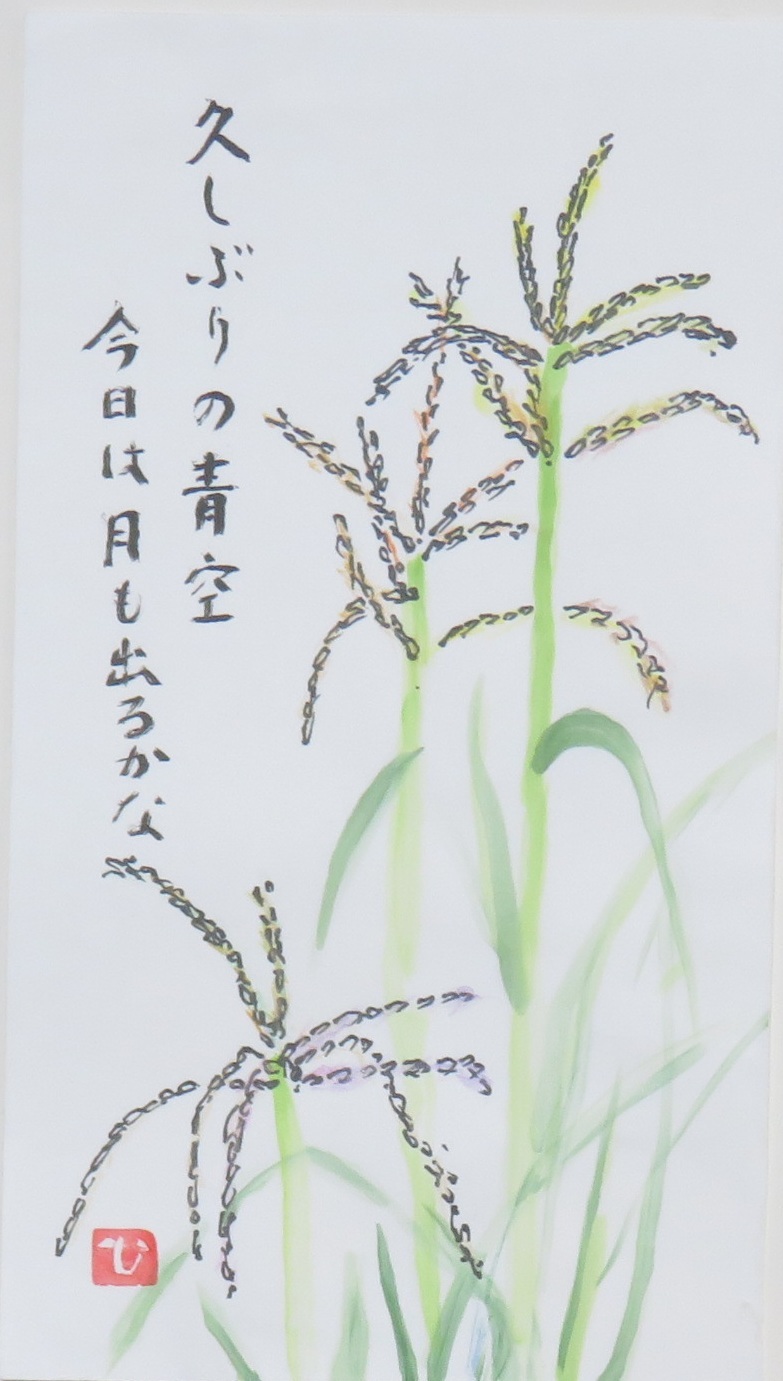 久しぶりの青空
今日は月も出るかな
ひ